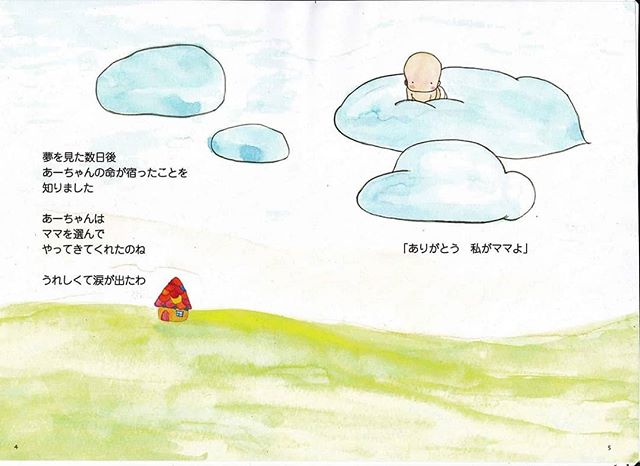 夢を見た数日後
あーちゃんの命が宿ったことを
知りました
あーちゃんは
ママを選んで
やってきてくれたのね
うれしくて涙が出たわ
「ありがとう　私がママよ」
4
5